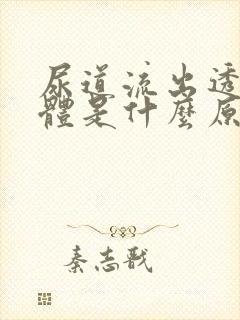 尿道流出透
體是什麼原
秦志戩